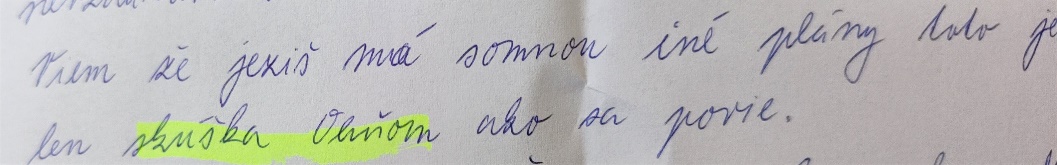 Viem že ježiš má somnou iné plány toto je
len skúška Ohňom ako sa povie.